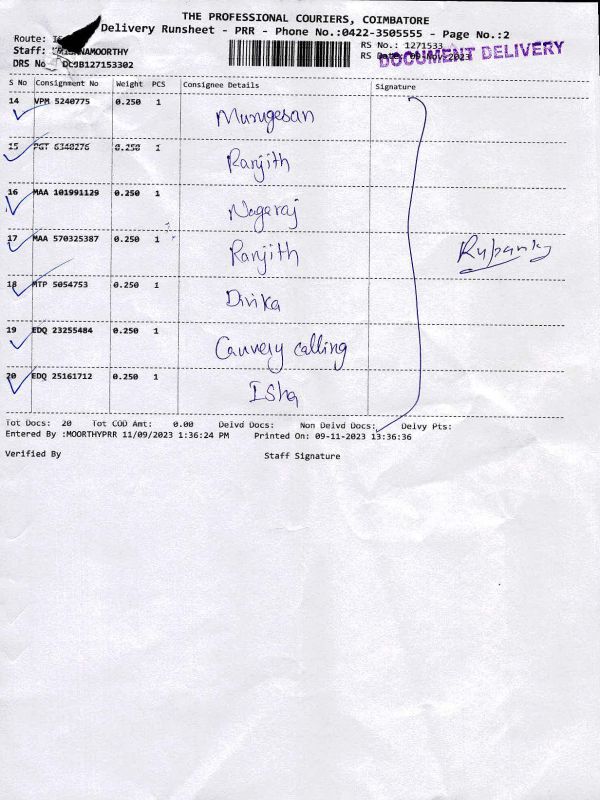 THE PROFESSIONAL COURIERS, COIMBATORE
Delivery Runsheet - PRR - Phone No.:0422-3505555 - Page No.:2
Route:
RS No.: 1271533
Staff: KRISHNAMOORTHY
RS Date: 09-Nov-2023
DOCUMENT DELIVERY
DRS No DC9B127153302
S No Consignment No Weight PCS Consignee Details Signature
14 VPM 5240775 0.250 1 Murugesan
15 PGT 6340276 0.250 1 Ranjith
16 MAA 101991129 0.250 1 Nagaraj
17 MAA 570325387 0.250 1 Ranjith
18 MTP 5054753 0.250 1 Divika
19 EDQ 23255484 0.250 1 Cauvery calling
20 EDQ 25161712 0.250 1 Isha
Tot Docs: 20 Tot COD Amt: 0.00 Delvd Docs: Non Delvd Docs: Delvy Pts:
Entered By :MOORTHYPRR 11/09/2023 1:36:24 PM Printed On: 09-11-2023 13:36:36
Verified By Staff Signature